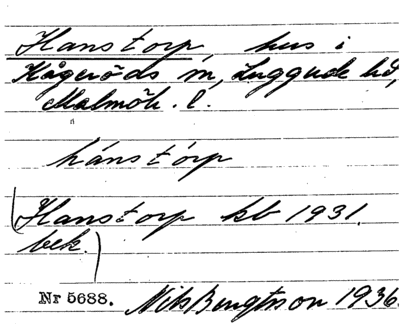 Hanstorp, hus i
Kågeröds sn, Luggude hd,
Malmöh. l.
hánstórp
(Hanstorp kb 1931.
bek.)
Nr 5688. Nils Bengtsson 1936.